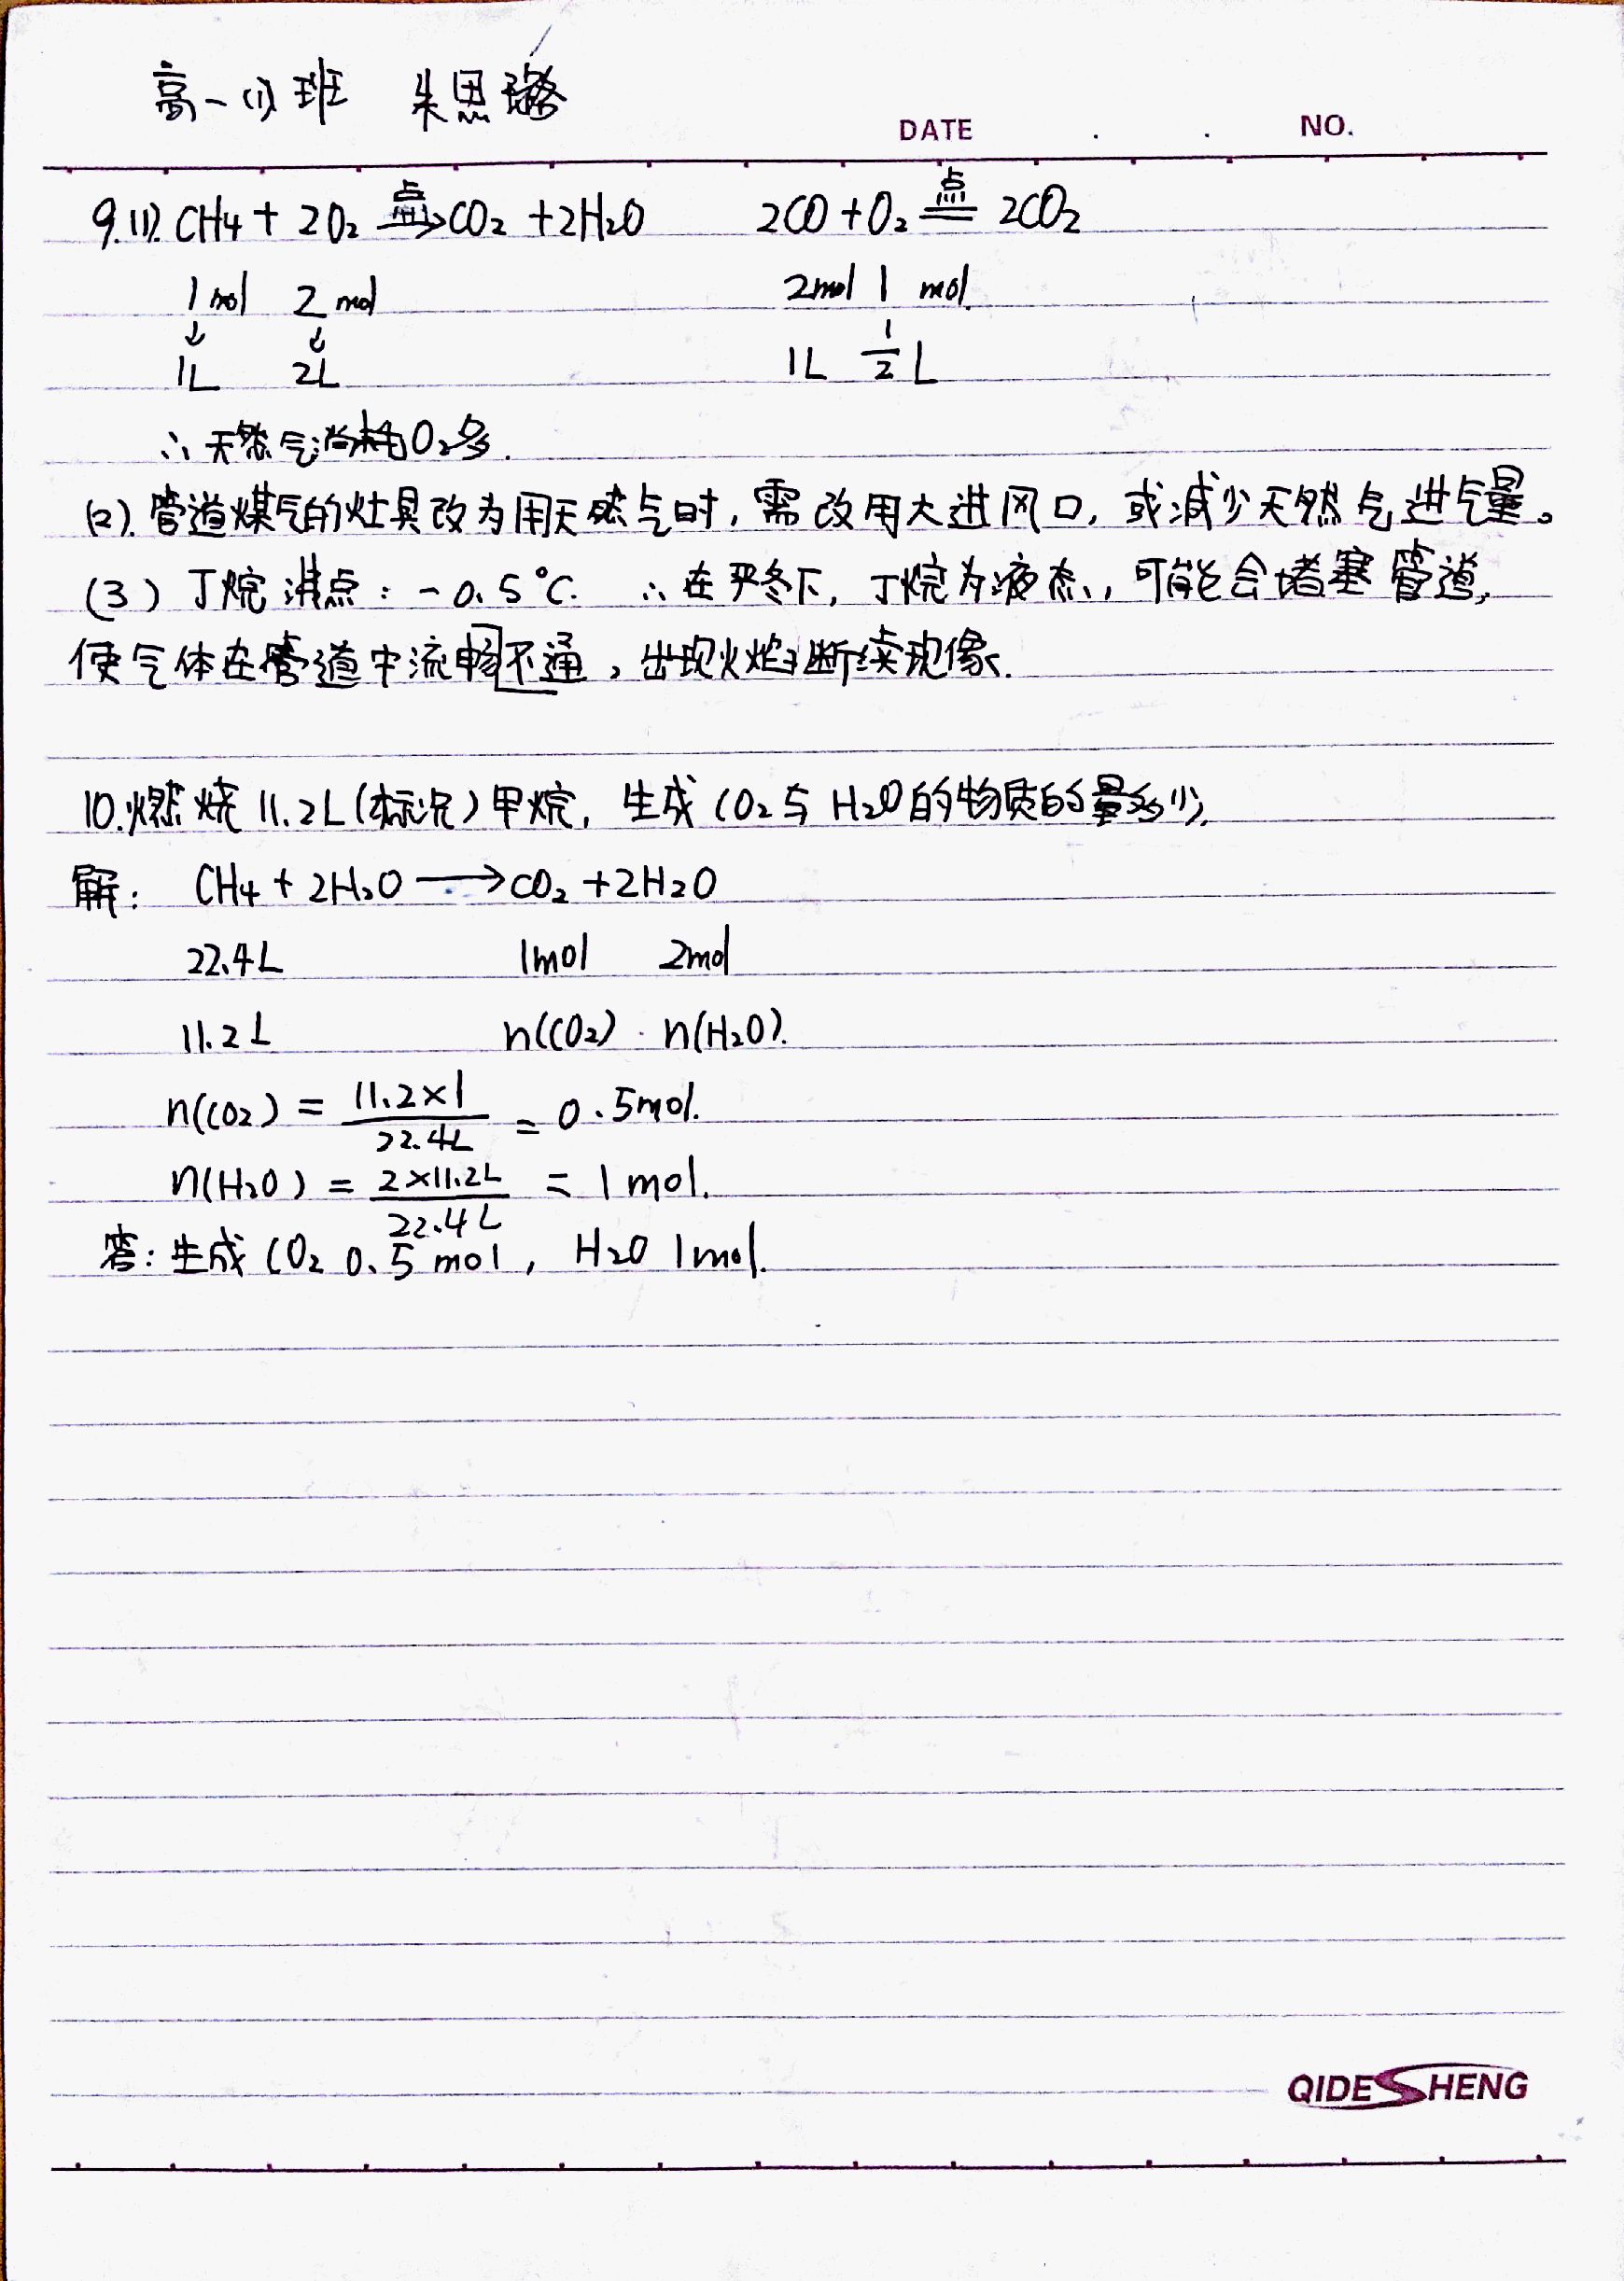 高一(1)班 朱思璐
DATE . . NO.
9.(1). CH₄ + 2O₂ 点燃→ CO₂ + 2H₂O 2CO + O₂ 点燃= 2CO₂
1mol 2mol 2mol 1mol
↓ ↓
1L 2L 1L 1/2 L
∴ 天然气消耗O₂多.
(2). 管道煤气的灶具改为用天然气时, 需改用大进风口, 或减少天然气进气量。
(3) 丁烷沸点: -0.5℃. ∴在严冬下, 丁烷为液态, 可能会堵塞管道,
使气体在管道中流畅不通, 出现火焰断续现像.
10.燃烧11.2L(标况)甲烷, 生成CO₂与H₂O的物质的量多少.
解: CH₄ + 2H₂O ⟶ CO₂ + 2H₂O
22.4L 1mol 2mol
11.2L n(CO₂) . n(H₂O).
n(CO₂) = 11.2×1/22.4L = 0.5mol.
n(H₂O) = 2×11.2L/22.4L = 1mol.
答: 生成CO₂ 0.5mol, H₂O 1mol.
QIDESHENG